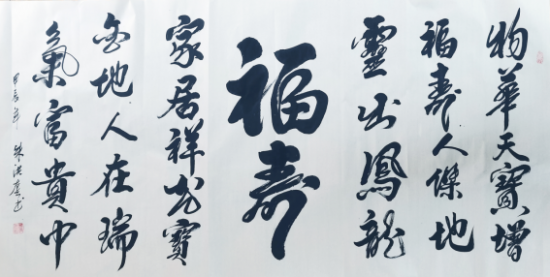 物華天寶增
福壽人傑地
靈出鳳龍
福壽
家居祥光寶
金地人在瑞
氣富貴中
甲辰年 朱洪